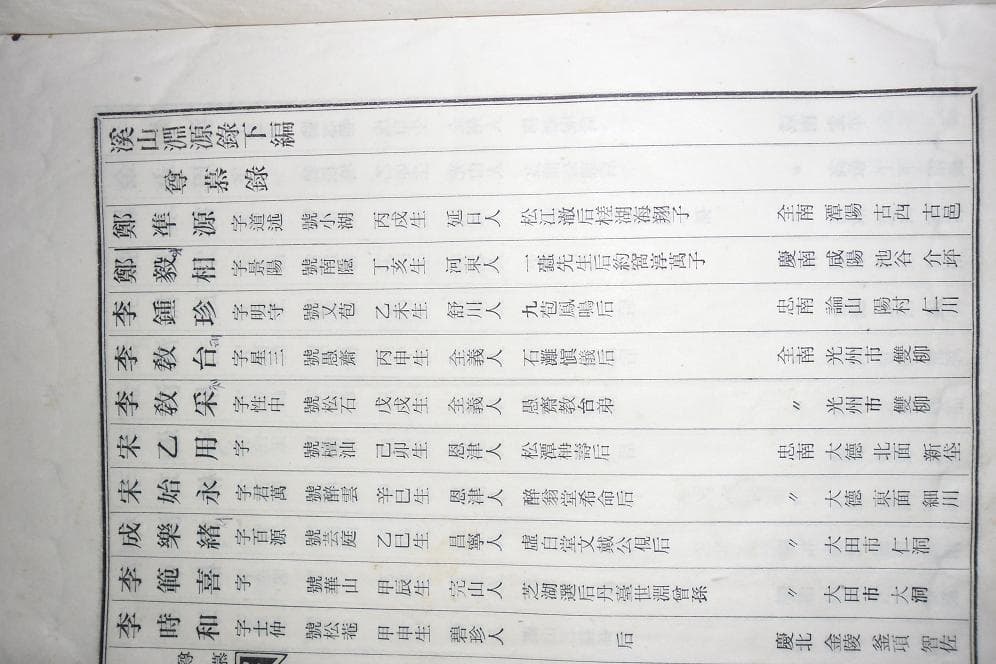 溪山淵源錄下編
尊慕錄
鄭準源 字道述 號小湖 丙戌生 延日人 松江澈后桂湖海翔子 全南 潭陽 古西 古邑
鄭毅相 字景陽 號南隱 丁亥生 河東人 一蠹先生后約窩淳萬子 慶南 咸陽 池谷 介坪
李鍾珍 字明守 號又苞 乙未生 舒川人 九苞鳳鳴后 忠南 論山 陽村 仁川
李敎台 字星三 號愚齋 丙申生 全義人 石灘愼儀后 全南 光州市 雙柳
李敎采 字性中 號松石 戊戌生 全義人 愚齋敎台弟 〃 光州市 雙柳
宋乙用 字 號檀汕 己卯生 恩津人 松潭柟壽后 忠南 大德 北面 新垈
宋始永 字君萬 號醉雲 辛巳生 恩津人 醉翁堂希命后 〃 大德 東面 細川
成樂緖 字百源 號芸庭 乙巳生 昌寧人 虛白堂文戴公俔后 〃 大田市 仁洞
李範喜 字 號華山 甲辰生 完山人 芝湖選后丹臺世淵曾孫 〃 大田市 大洞
李時和 字士仲 號松菴 甲申生 碧珍人 后 慶北 金陵 釜項 智佐
尊慕